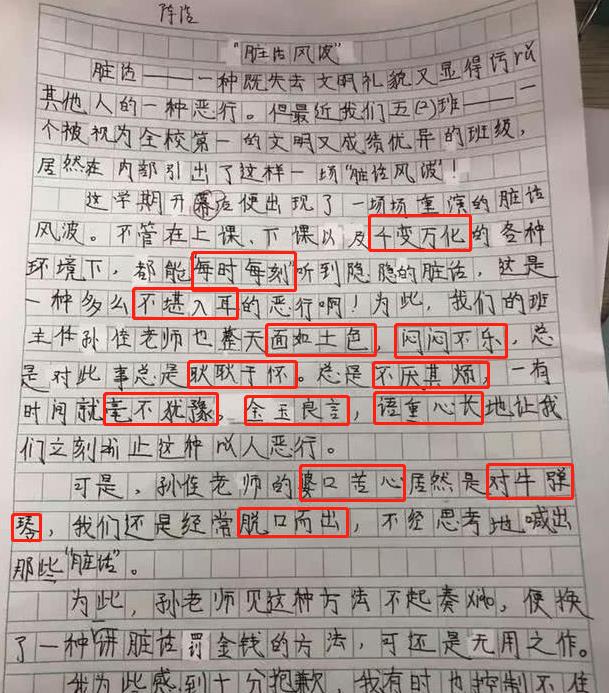 陈浩
"脏话风波"
脏话———一种既失去文明礼貌又显得污rǔ
其他人的一种恶行。但最近我们五(2)班———一
个被视为全校第一的文明又成绩优异的班级,
居然在内部引出了这样一场"脏话风波"!
这学期开幕后便出现了一场场重演的脏话
风波。不管在上课、下课以及千变万化的各种
环境下,都能"每时每刻"听到隐隐的脏话,这是
一种多么不堪入耳的恶行啊!为此,我们的班
主任孙佳老师也整天面如土色,闷闷不乐,总
是对此事总是耿耿于怀。总是不厌其烦,一有
时间就毫不犹豫、金玉良言,语重心长地让我
们立刻停止这种以人恶行。
可是,孙佳老师的婆口苦心居然是对牛弹
琴,我们还是经常脱口而出,不经思考地喊出
那些"脏话"。
为此,孙老师见这种方法不起奏xiào,便换
了一种"讲脏话罚金钱的方法,可还是无用之作。
我为此感到十分抱歉,我有时也控制不住